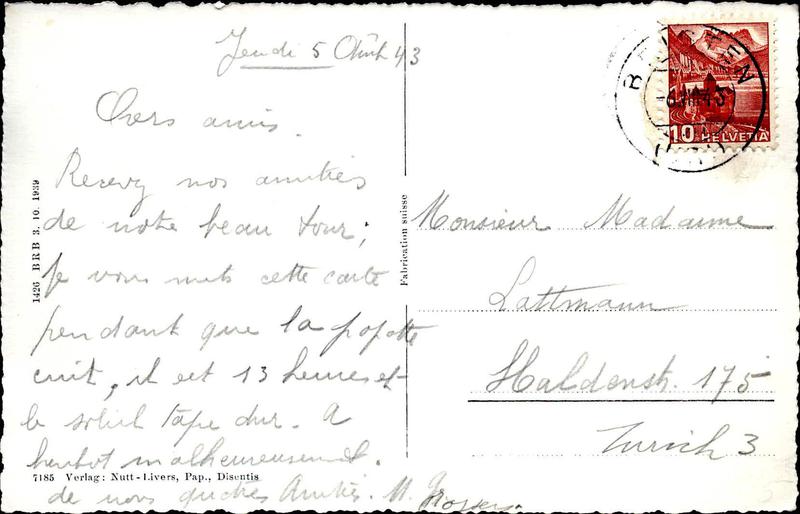 Jeudi 5 Août 43
Chers amis.
Recevez nos amitiés
de notre beau tour;
Je vous mets cette carte
pendant que la popotte
cuit, il est 13 heures et
le soleil tape dur. A
bientot malheureusement.
de nous quatres Amitiés. M.
7185 Verlag: Nutt-Livers, Pap., Disentis
1426 BRB 3. 10. 1939
Fabrication suisse
10 HELVETIA
Monsieur Madame
Lattmann
Haldenstr. 175
Zurich 3